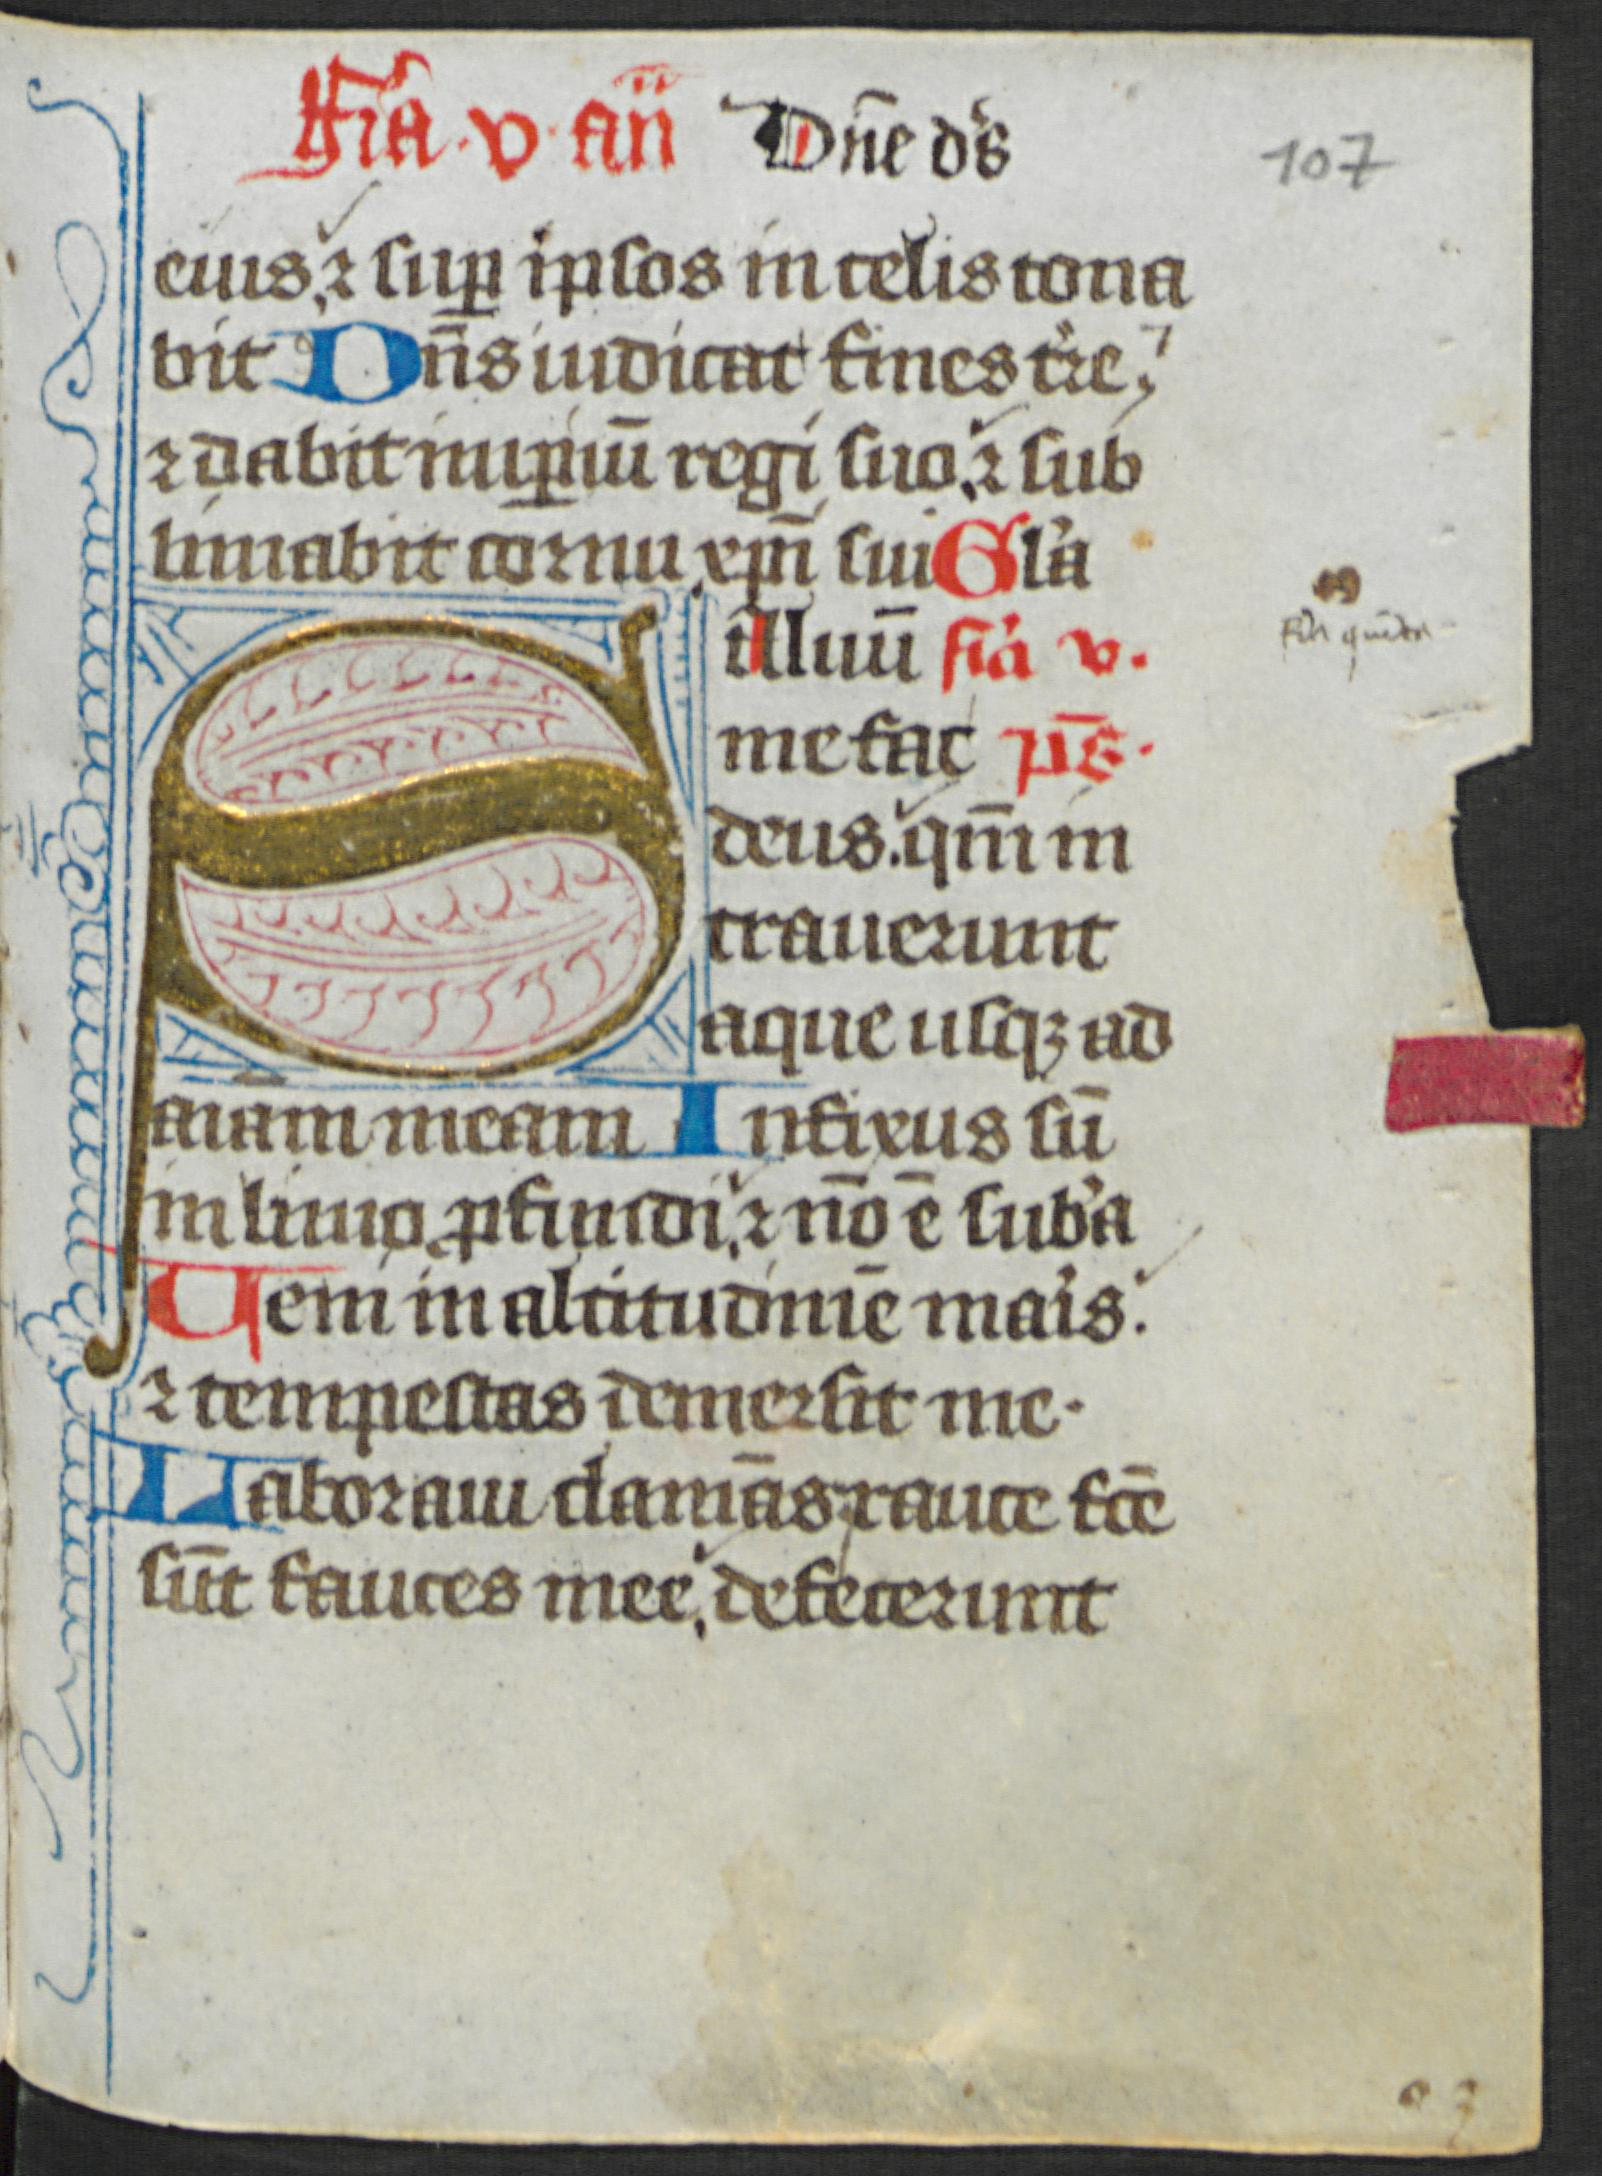 Fr̃ia · v · añ Dñe ds̃
107
eius, ⁊ sup̱ ipsos in celis tona
bit Dñs iudicat fines tr̃e,
⁊ dabit imp̱iuʒ̃ regi suo, ⁊ sub
limabit cornu xp̃i sui Gl̃a
Aluũ fr̃ia v.
me fac p̃s.
deus. qm̃ in
trauerunt
aque usqꝫ ad
aĩam meam Infixus sũ
in limo ꝓfundi, ⁊ nõ ẽ sub̃a
Ueni in altitudinẽ mar̃is.
⁊ tempestas demersit me.
Laboraui clamãs rauce fc̃e
sũt fauces mee, defecerunt